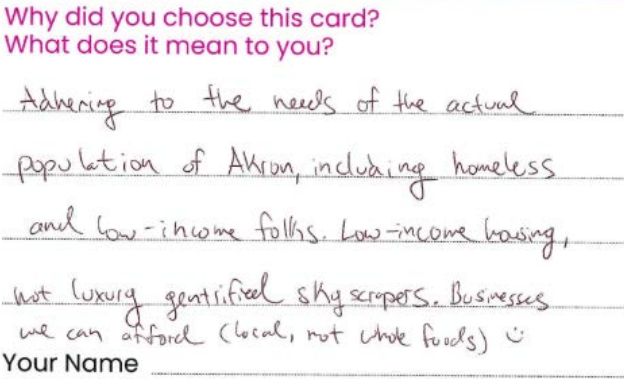 Why did you choose this card?
What does it mean to you?
Adhering to the needs of the actual
population of Akron, including homeless
and low-income folks. Low-income housing,
not luxury gentrified sky scrapers. Businesses
we can afford (local, not whole foods) :)
Your Name